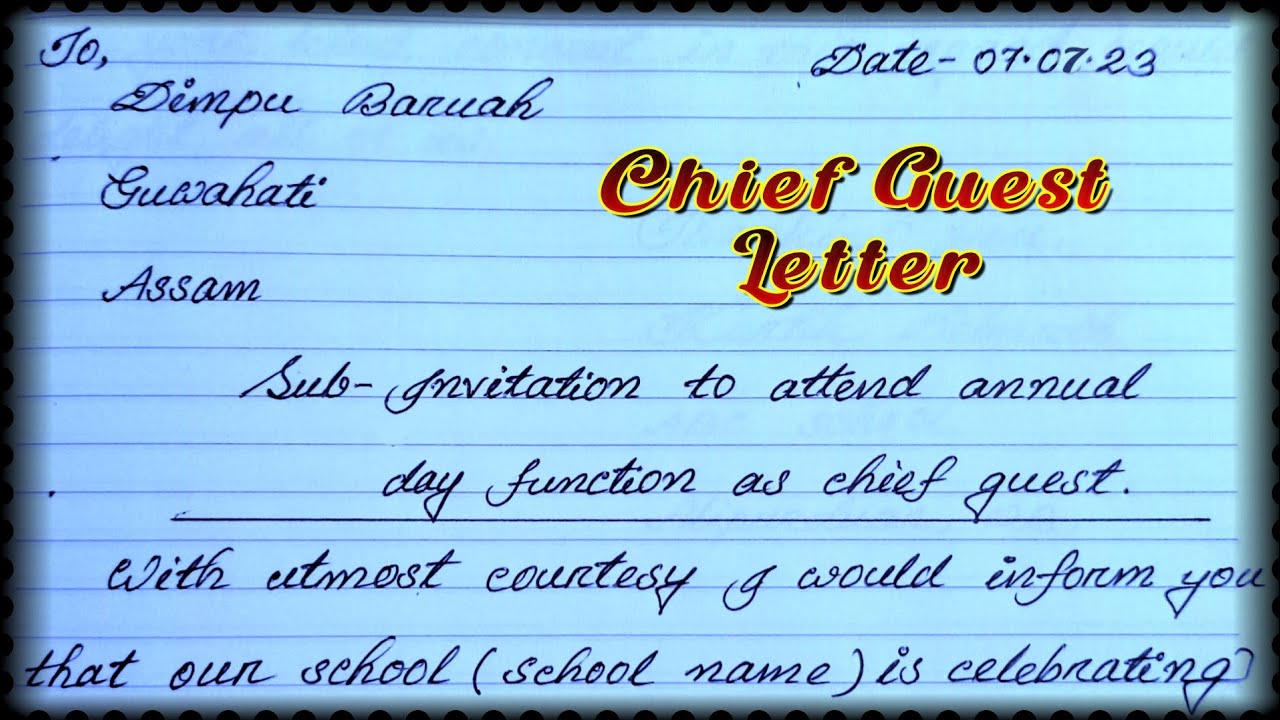 To,
Date- 07.07.23
Dimpu Baruah
Chief Guest
Letter
Guwahati
Assam
Sub- Invitation to attend annual
day function as chief guest.
With utmost courtesy I would inform you
that our school (school name) is celebrating